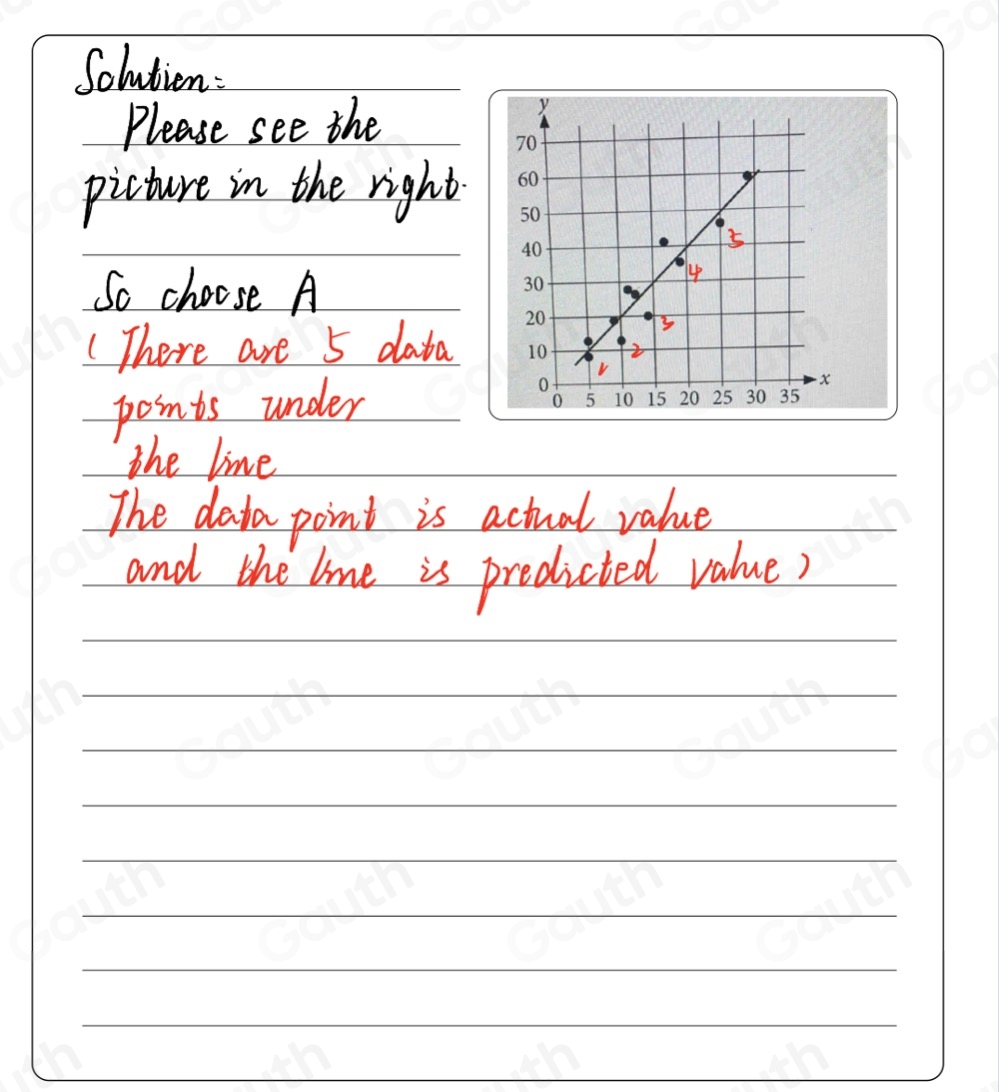 Solution:
Please see the
picture in the right.
So choose A
(There are 5 data
points under
the line
The data point is actual value
and the line is predicted value)
y
70
60
50
40
30
20
10
0
0 5 10 15 20 25 30 35 x
1
2
3
4
5
Gauth